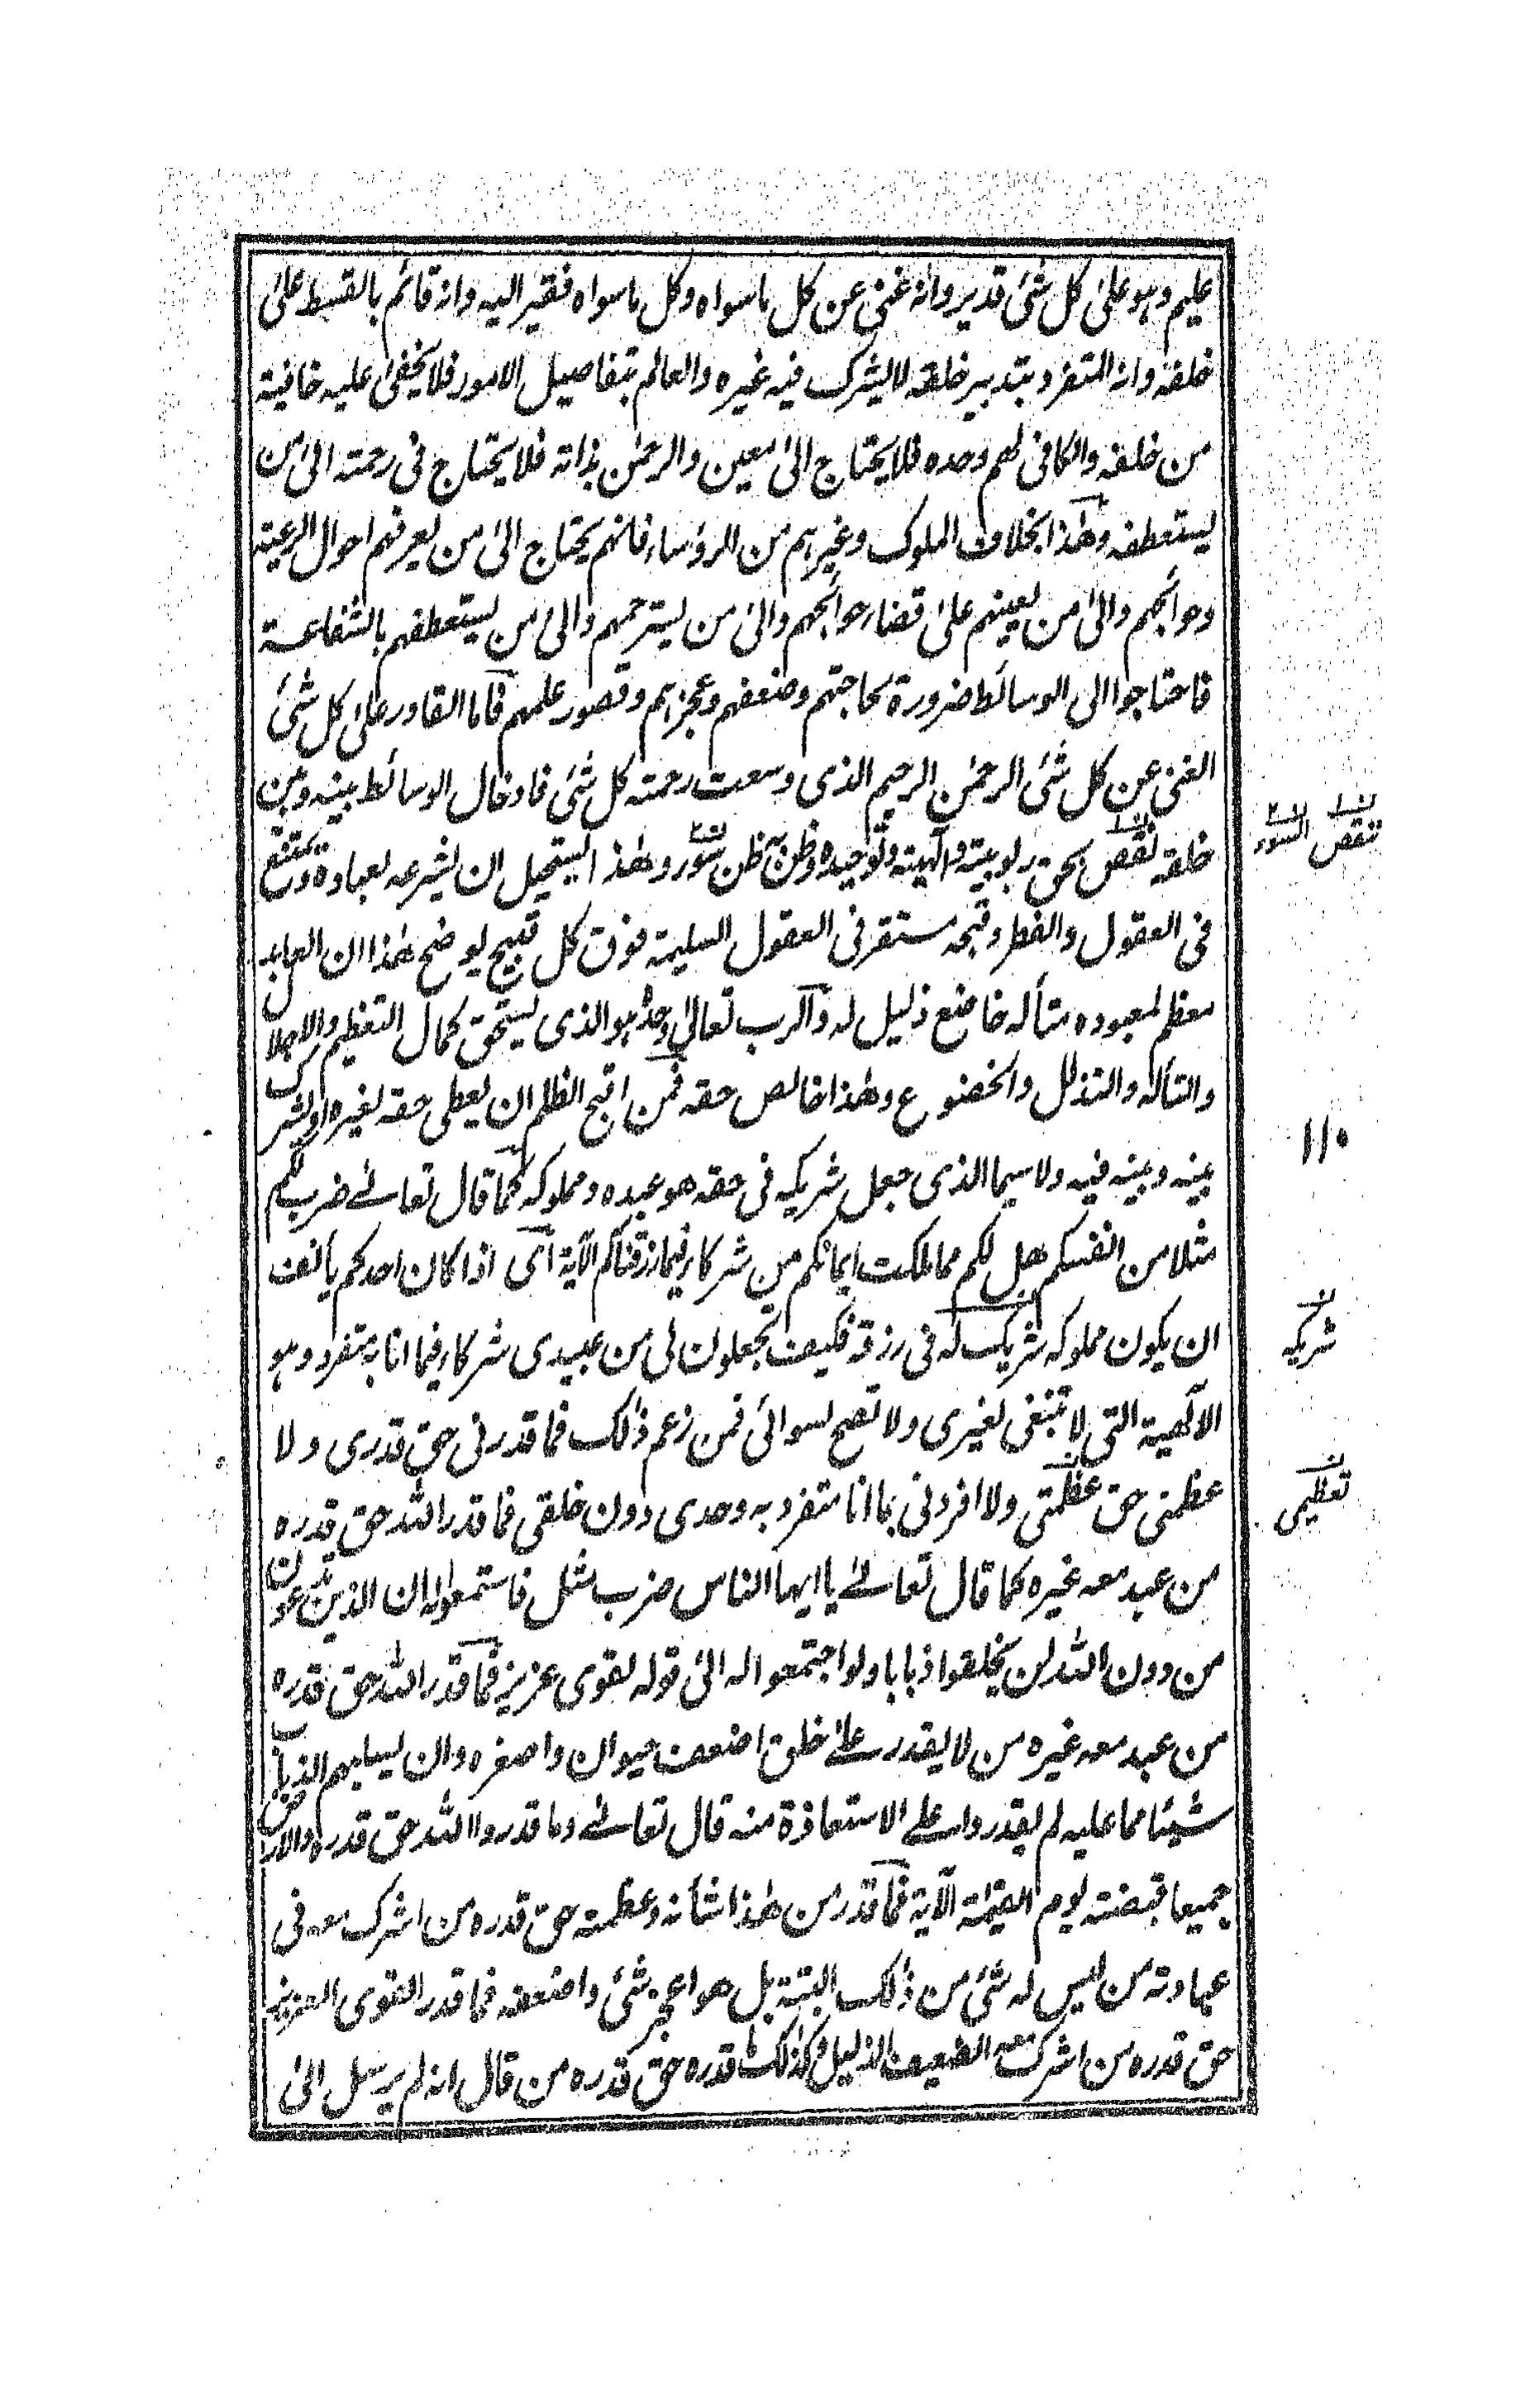 عليم وهو على كل شئ قدير وانه غنى عن كل ماسواه وكل ماسواه فقير اليه وانه قائم بالقسط على
خلقه وانه المتفرد بتدبير خلقه لايشرك فيه غيره والعالم بتفاصيل الامور فلا يخفى عليه خافية
من خلقه والكافى لهم وحده فلا يحتاج الى معين والرحمن بذاته فلا يحتاج فى رحمته الى من
يستعطفه وهذا بخلاف الملوك وغيرهم من الرؤساء فانهم يحتاج الى من يعرفهم احوال الرعية
وحوائجهم والى من يعينهم على قضاء حوائجهم والى من يسترحمهم والى من يستعطفهم بالشفاعة
فاحتاجوا الى الوسائط ضرورة لحاجتهم وضعفهم وعجزهم وقصور علمهم فاما القادر على كل شئ
الغنى عن كل شئ الرحمن الرحيم الذى وسعت رحمته كل شئ فادخال الوسائط بينه وبين
خلقه نقص بحق ربوبيته والٰهيته وتوحيده وظن به ظن سوء وهذا يستحيل ان يشرعه لعباده ويمتنع
فى العقول والفطر وقبحه مستقر فى العقول السليمة فوق كل قبيح يوضح هذا ان العابد
معظم لمعبوده متأله خاضع ذليل له والرب تعالى وحده هو الذى يستحق كمال التعظيم والاجلال
والتأله والتذلل والخضوع وهذا خالص حقه فمن اقبح الظلم ان يعطى حقه لغيره او يشرك
بينه وبينه فيه ولاسيما الذى جعل شريكه فى حقه هو عبده ومملوكه كما قال تعالى ضرب لكم
مثلا من انفسكم هل لكم مما ملكت ايمانكم من شركاء فيما رزقناكم الآية اى اذا كان احدكم يأنف
ان يكون مملوكه شريك له فى رزقه فكيف تجعلون لى من عبيدى شركاء فيما انا به متفرد وهو
الالٰهية التى لا تنبغى لغيرى ولا تصح لسوائى فمن زعم ذلك فما قدرنى حق قدرى ولا
عظمنى حق عظمتى ولا افردنى بما انا متفرد به وحدى دون خلقى فما قدر الله حق قدره
من عبد معه غيره كما قال تعالى يا ايها الناس ضرب مثل فاستمعوا له ان الذين تدعون
من دون الله لن يخلقوا ذبابا ولو اجتمعوا له الى قوله لقوى عزيز فما قدر الله حق قدره
من عبد معه غيره من لا يقدر على خلق اضعف حيوان واصغره وان يسلبهم الذباب
شيئا مما عليه لم يقدروا على الاستعاذة منه قال تعالى وما قدروا الله حق قدره والارض
جميعا قبضته يوم القيمة الآية فما قدر من هذا شأنه وعظمته حق قدره من اشرك معه فى
عبادته من ليس له شئ من ذلك البتة بل هو اعجز شئ واضعفه فما قدر القوى العزيز
حق قدره من اشرك معه الضعيف الذليل وكذلك ما قدره حق قدره من قال انه لم يرسل الى
تنقص السوء
١١٠
شريكه
تعظيمى